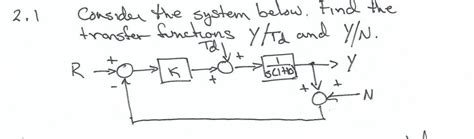 2.1 Consider the system below. Find the
transfer functions Y/Td and Y/N.
Td + +
R + K + Y
- + +
N